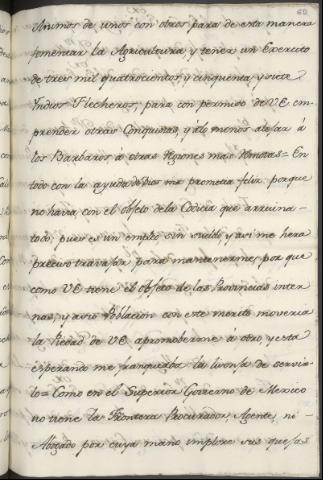 Animos de unos con otros para de esta manera
fomentar la Agricultura, y tener un Exercito
de tres mil quatrocientos, y cinquenta, y siete
Indios Flecheros, para con permiso de VE em-
prender otras Conquistas, y à lo menos alejar á
los Barbaros à otras Regiones mas remotas = En
todo con la ayuda de Dios me prometia feliz porque
no havia con el objeto de la Codicia que arruina-
todo, pues es un empleo sin sueldo, y asi me hera
preciso travajar para mantenerme, por que
como VE tiene el objeto de las Provincias inter
nas, y a su Poblacion con este merito moveria
la Piedad de VE apromoberme à otro, y esta
esperando me franqueaba la honrra de servir
lo = Como en el Superior Govierno de Mexico
no tiene la Frontera Procurador, Agente, ni
Abogado por cuya mano implore sus quejas